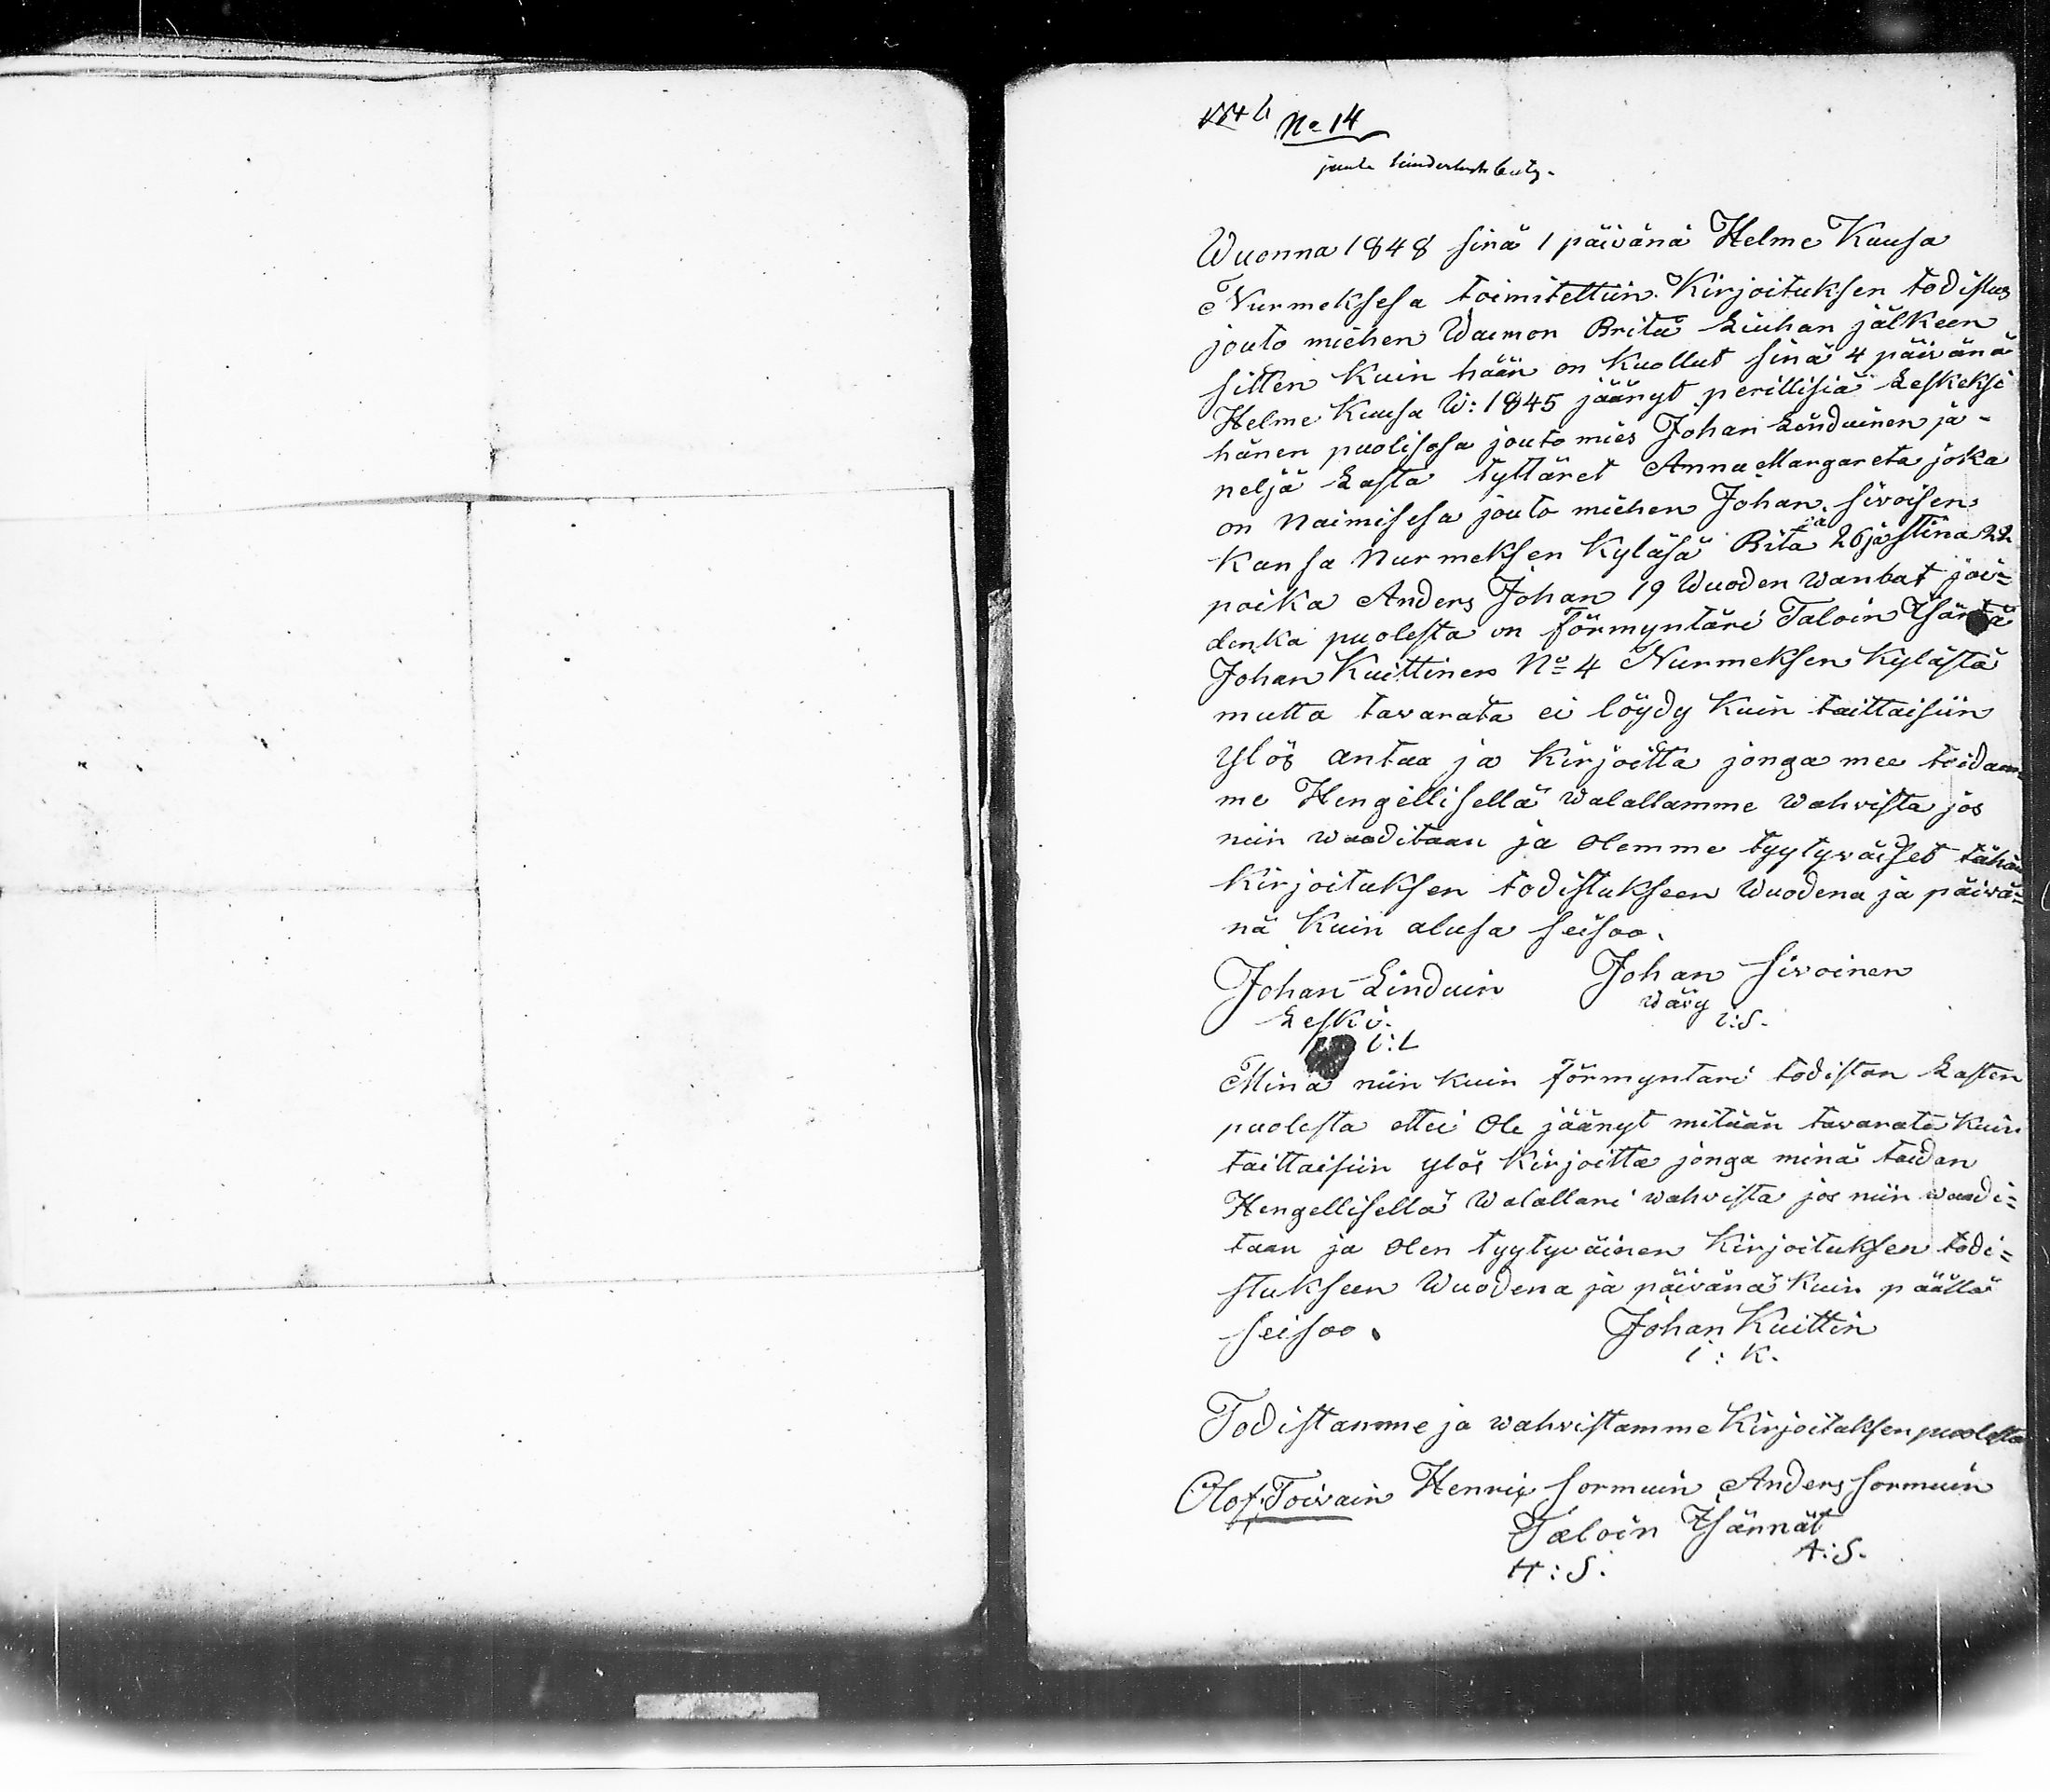 No 14
Wuonna 1848 sinä 1 päivänä Helme Kuusa
Nurmeksesa toimitettiin Kirjoituksen todistus
jouto miehen Waimon Brita Liuhan jälkeen
sitten Kuin hään on Kuollut sinä 4 päivänä
Helme Kuusa W: 1845 jäänyt perillisiä Leskeksi
hänen puolisosa jouto mies Johan Linduinen ja
neljä Lasta tyttäret Anna Margareta joka
on Naimisesa jouto miehen Johan Sivoisen
Kansa Nurmeksen Kyläsä Rita 26 ja Stina 22
poika Anders Johan 19 Wuoden wanbat joi=
denka puolesta on förmyntäri Taloin Isäntä
Johan Kuittinen No 4 Nurmeksen Kylästä
mutta tavarata ei löydy Kuin taittaisiin
Ylös antaa ja Kirjoitta jonga mee taidam
me Hengellisellä walallamme wahvista jos
niin waaditaan ja Olemme tyytyväiset tähän
Kirjoituksen todistukseen Wuodena ja päivä=
nä Kuin alusa seisoo.
Johan Linduin Johan Sivoinen
Leski. Wävy I:S.
I:L
Minä niin Kuin förmyntari todistan Lasten
puolesta ettei Ole jäänyt mitään tavarata Kuin
taittaisiin ylös Kirjoitta jonga minä taidan
Hengellisellä Walallani wahvista jos niin waadi=
taan ja Olen tyytyväinen Kirjoituksen todi=
stukseen Wuodena ja päivänä Kuin päällä
seisoo. Johan Kuittin
I: K.
Todistamme ja wahvistamme Kirjoituksen puolesta
Olof Toivain Henrix Sormuin Anders Sormuin
Taloin Isännät
H: S. A: S.